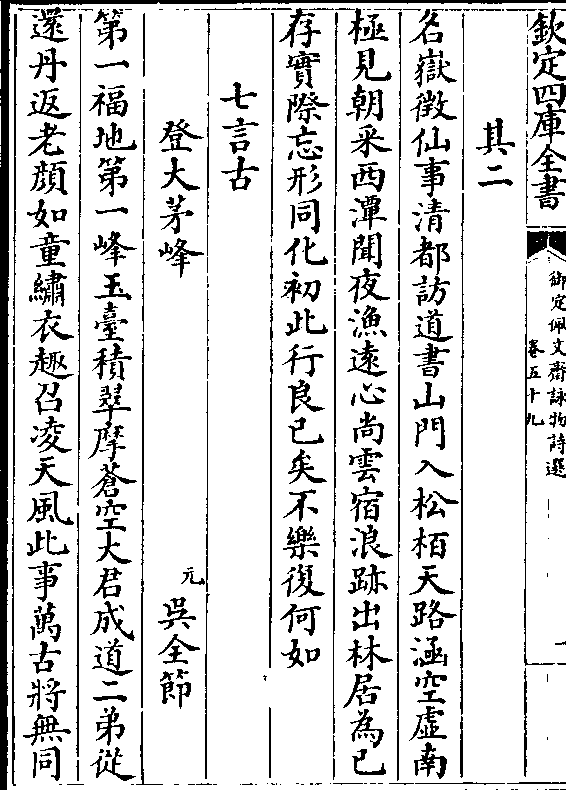 欽定四庫全書
御定佩文齋詠物詩選
卷五十九
其二
名嶽徵仙事清都訪道書山門入松栢天路涵空虛南
極見朝采西潭聞夜漁遠心尚雲宿浪跡出林居為已
存實際忘形同化初此行良已矣不樂復何如
七言古
登大茅峰
元
吳全節
第一福地第一峰玉臺積翠摩蒼空大君成道二弟從
還丹返老顏如童繡衣趣召凌天風此事萬古將無同